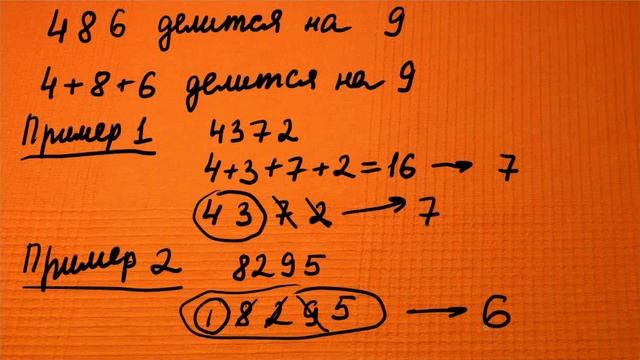 486 делится на 9
4+8+6 делится на 9
Пример 1 4372
4+3+7+2=16 → 7
4372 → 7
Пример 2 8295
18295 → 6